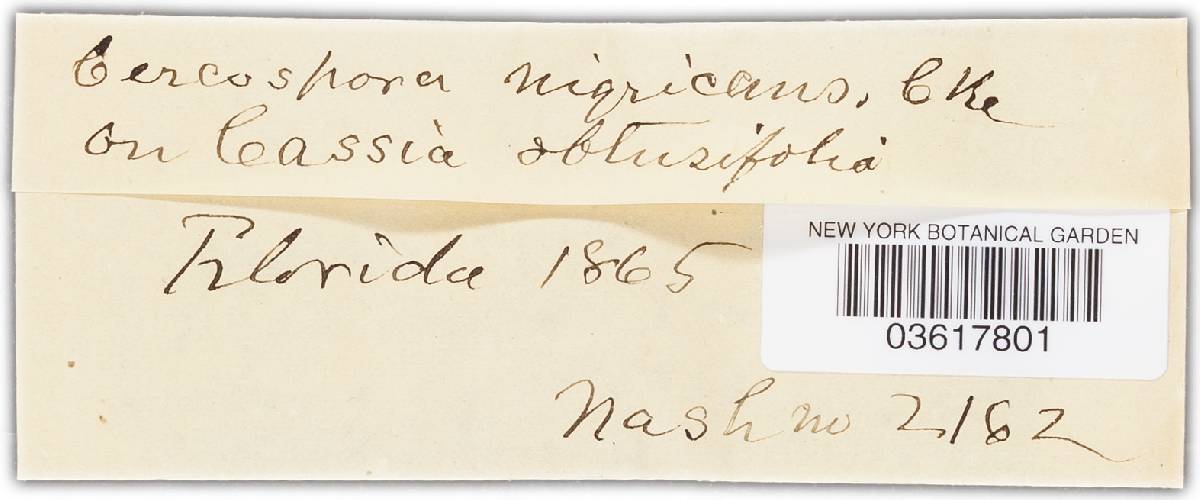 Cercospora nigricans, Cke
on Cassia obtusifolia
Florida 1865
NEW YORK BOTANICAL GARDEN
03617801
Nash no 2182